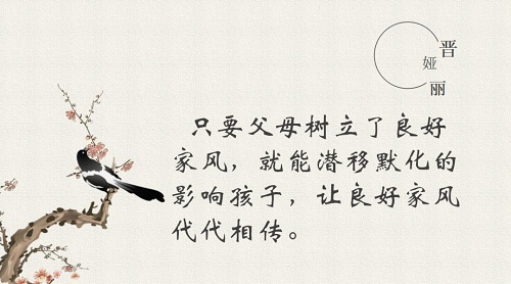 晋
娅
丽
只要父母树立了良好
家风，就能潜移默化的
影响孩子，让良好家风
代代相传。